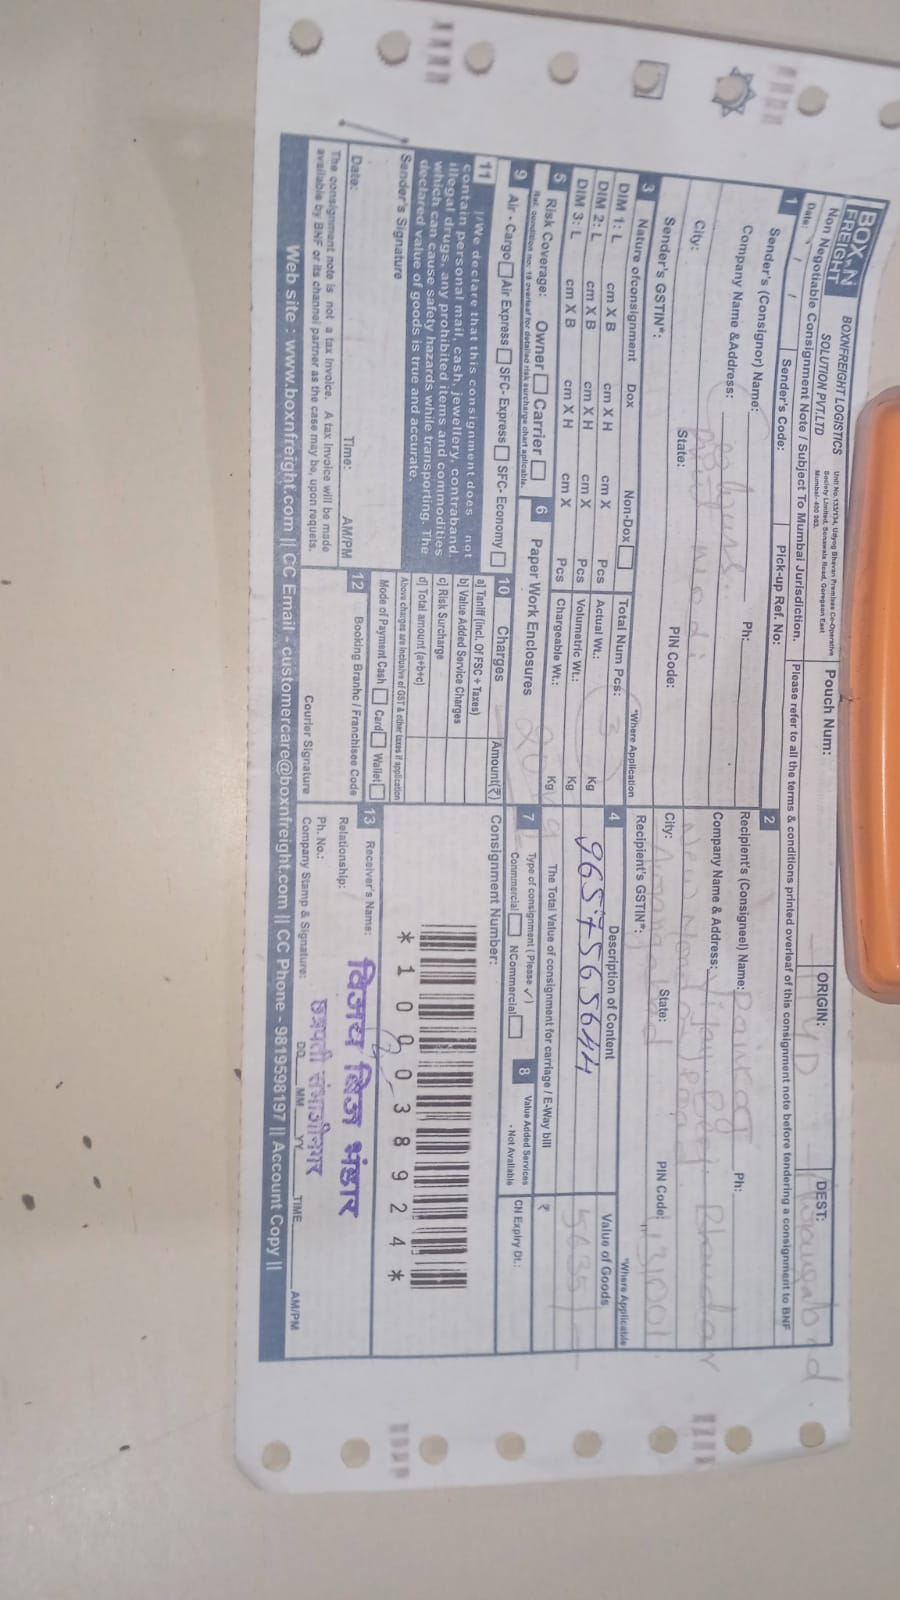 BOX N FREIGHT
BOXNFREIGHT LOGISTICS SOLUTION PVT.LTD
Unit No.133/134, Udyog Bhavan Premises Co-Operative
Society Limited, Sonawala Road, Goregaon East
Mumbai- 400 063.
Pouch Num:
ORIGIN: HYD
DEST: Aurangabad
Non Negotiable Consignment Note / Subject To Mumbai Jurisdiction.
Please refer to all the terms & conditions printed overleaf of this consignment note before tendering a consignment to BNF
Date: / /
Sender's Code:
Pick-up Ref. No:
1
Sender's (Consignor) Name:
Ph:
Company Name &Address:
City:
State:
PIN Code:
Sender's GSTIN*:
*Where Application
2
Recipient's (Consigneel) Name:
Ph:
Company Name & Address: Vijay Beej Bhandar
New Road
City: Aurangabad
State:
PIN Code:
Recipient's GSTIN*:
*Where Applicable
3 Nature ofconsignment Dox Non-Dox
DIM 1: L cm X B cm X H cm X Pcs
DIM 2: L cm X B cm X H cm X Pcs
DIM 3: L cm X B cm X H cm X Pcs
Total Num Pcs: 3
Actual Wt.: Kg
Volumetric Wt.: Kg
Chargeable Wt.: Kg
4 Description of Content
9657565644
The Total Value of consignment for carriage / E-Way bill
Value of Goods
5635/-
₹
5 Risk Coverage: Owner Carrier
Ref. condition no: 18 overleaf for detailed risk surcharge chart aplicable.
6 Paper Work Enclosures
7 Type of consignment ( Please ✓ )
Conmmercial NCommercial
8 Value Added Services
- Not Available
CN Expiry Dt.:
9 Air - Cargo Air Express SFC- Express SFC- Economy
10 Charges Amount(₹)
a] Taniff (incl. Of FSC + Taxes)
b] Value Added Service Charges
c] Risk Surcharge
d] Total amount (a+b+c)
Above charges are inclusive of GST & other taxes if application
Mode of Payment Cash Card Wallet
11 I/We declare that this consignment does not
contain personal mail, cash, jewellery, contraband.
illegal drugs, any prohibited items and commodities
which can cause safety hazards while transporting. The
declared value of goods is true and accurate.
Sender's Signature
Date: Time: AM/PM
The consignment note is not a tax Invoice. A tax Invoice will be made
available by BNF or its channel partner as the case may be, upon requets.
12 Booking Branhc / Franchisee Code
Courier Signature
Consignment Number:
*100038924*
13 Receiver's Name:
विजय बिज भंडार
Relationship:
छत्रपती संभाजीनगर
Ph. No.:
Company Stamp & Signature: DD MM YY TIME AM/PM
Web site : www.boxnfreight.com || CC Email - customercare@boxnfreight.com || CC Phone - 9819598197 || Account Copy ||